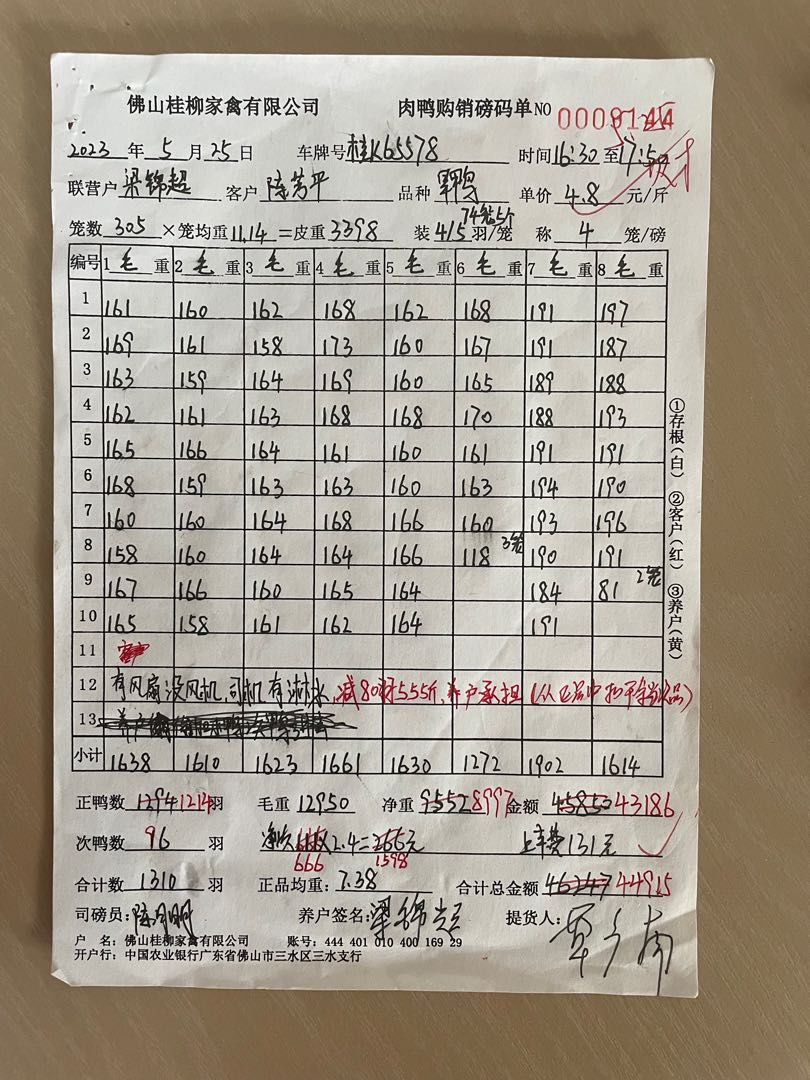 佛山桂柳家禽有限公司 肉鸭购销磅码单 NO 0009144
2023 年 5 月 25 日 车牌号 桂K65578 时间 16:30 至 17:50
联营户 梁锦超 客户 陈芳平 品种 单价 4.8 元/斤
74笼5个
笼数 305 ×笼均重 11.14 =皮重 3398 装 4/5 羽/笼 称 4 笼/磅
编号 1 毛 重 2 毛 重 3 毛 重 4 毛 重 5 毛 重 6 毛 重 7 毛 重 8 毛 重
1 161 160 162 168 162 168 191 197
2 169 161 158 173 160 167 191 187
3 163 159 164 169 160 165 189 188
4 162 161 163 168 168 170 188 193
5 165 166 164 161 160 161 191 191
6 168 159 163 163 160 163 194 190
7 160 160 164 168 166 160 193 196
8 158 160 164 164 166 118 3笼 190 191
9 167 166 160 165 164 184 81 2笼
10 165 158 161 162 164 191
11
12 有风扇没风机,司机有淋水,减80羽555斤,养户承担
13
小计 1638 1610 1623 1661 1630 1272 1902 1614
正鸭数 1294 1214 羽 毛重 12950 净重 9552 8997 金额 45850 43186
次鸭数 96 羽 2.4= 元 上车费131元
666 1598
合计数 1310 羽 正品均重: 7.38 合计总金额 46247 44915
司磅员: 养户签名: 梁锦超 提货人:
户 名: 佛山桂柳家禽有限公司 账号: 444 401 010 400 169 29
开户行: 中国农业银行广东省佛山市三水区三水支行
①存根(白) ②客户(红) ③养户(黄)